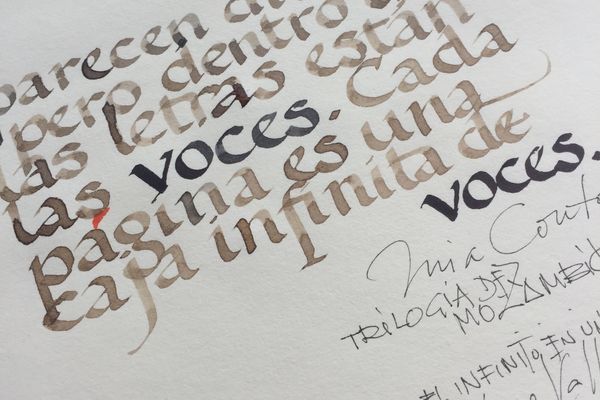 parecen
pero dentro
las letras están
las voces. Cada
página es una
caja infinita de
voces.
Mia Couto
TRILOGÍA DE
MOZAMBIC
EL INFINITO EN UN